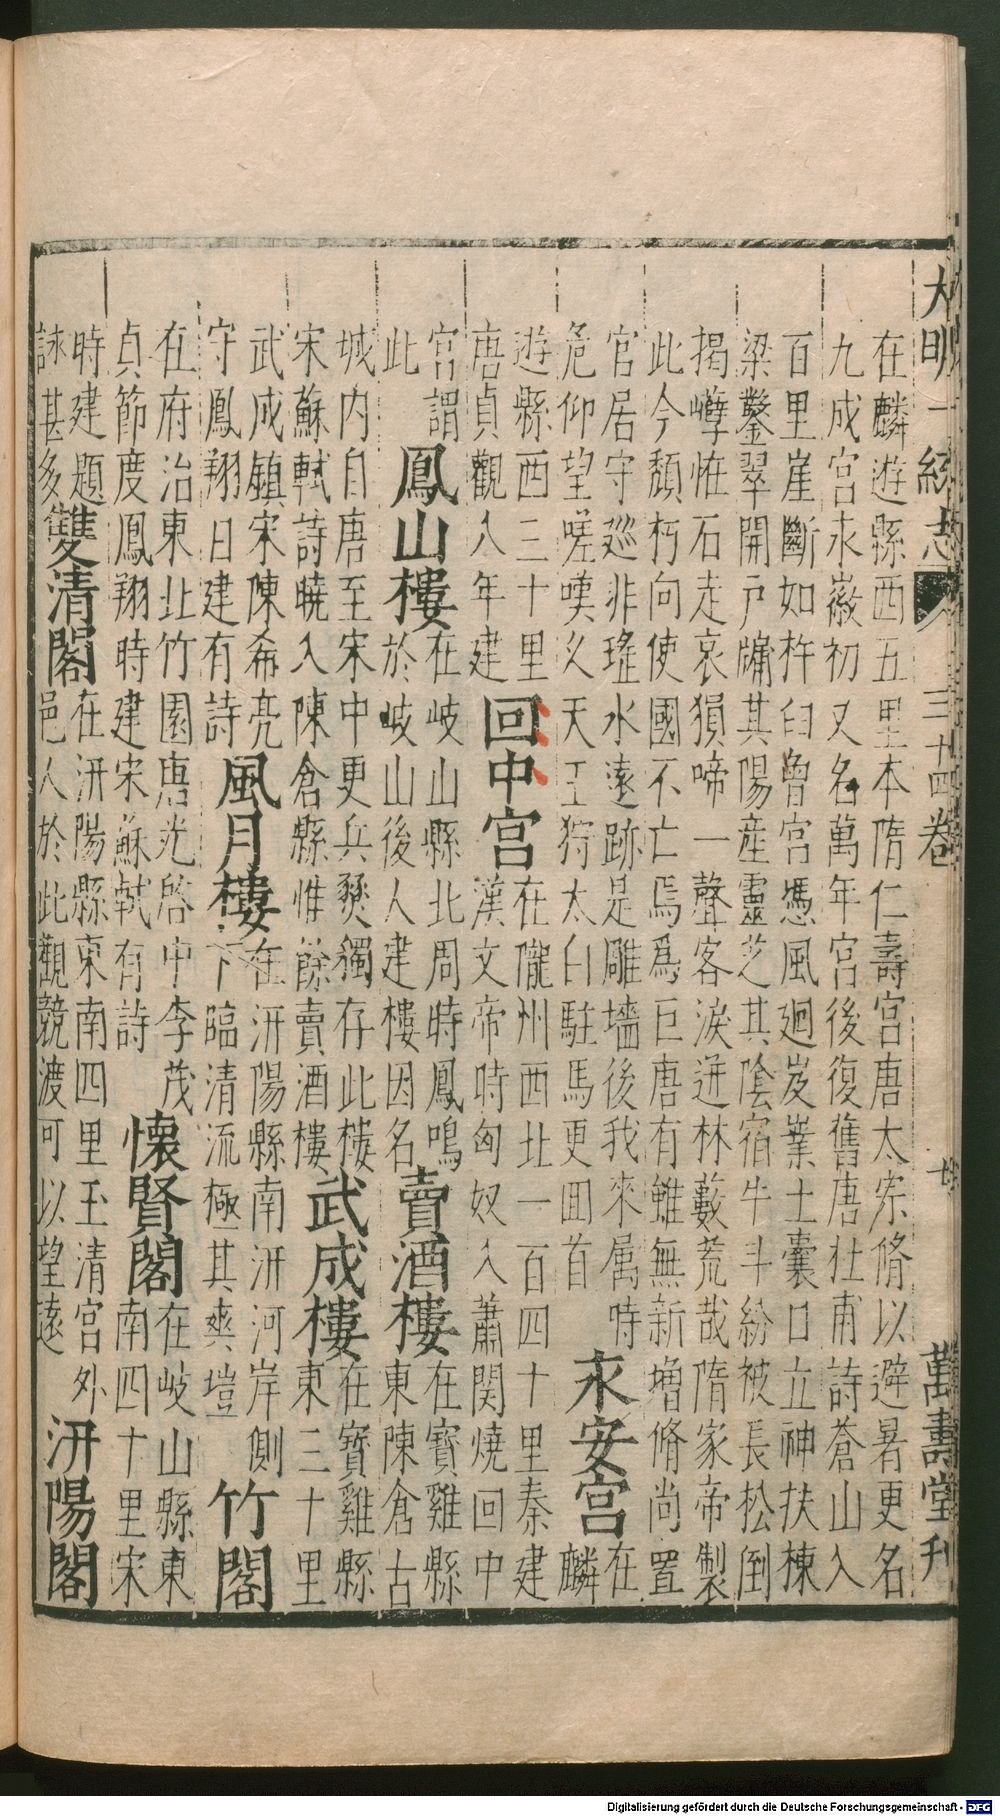 大明一統志 三十四卷 廿 萬壽堂刋
在麟遊縣西五里本隋仁壽宮唐太宗脩以避暑更名
九成宮永徽初又名萬年宮後復舊唐杜甫詩蒼山入
百里崖斷如杵臼曾宮憑風廻岌嶪土囊口立神扶棟
梁鑿翠開戶牖其陽產靈芝其陰宿牛斗紛被長松倒
揭㠔怪石走哀猿啼一聲客淚迸林藪荒哉隋家帝製
此今頹朽向使國不亡焉爲巨唐有雖無新增脩尚置
官居守巡非瑤水遠跡是雕墻後我來属時
危仰望嗟嘆久天王狩太白駐馬更囬首
永安宮
在麟
遊縣西三十里
唐貞觀八年建
回中宮
在隴州西北一百四十里秦建
漢文帝時匈奴入蕭関燒回中
宮謂
此
鳳山樓
在岐山縣北周時鳳鳴
於岐山後人建樓因名
賣酒樓
在寶雞縣
東陳倉古
城内自唐至宋中更兵燹獨存此樓
宋蘇軾詩曉入陳倉縣惟餘賣酒樓
武成樓
在寶雞縣
東三十里
武成鎮宋陳希亮
守鳳翔日建有詩
風月樓
在汧陽縣南汧河岸側
下臨清流極其爽塏
竹閣
在府治東北竹園唐光啓中李茂
貞節度鳳翔時建宋蘇軾有詩
懷賢閣
在岐山縣東
南四十里宋
時建題
詠甚多
雙清閣
在汧陽縣東南四里玉清宮外
邑人於此觀競渡可以望遠
汧陽閣
Digitalisierung gefördert durch die Deutsche Forschungsgemeinschaft - DFG